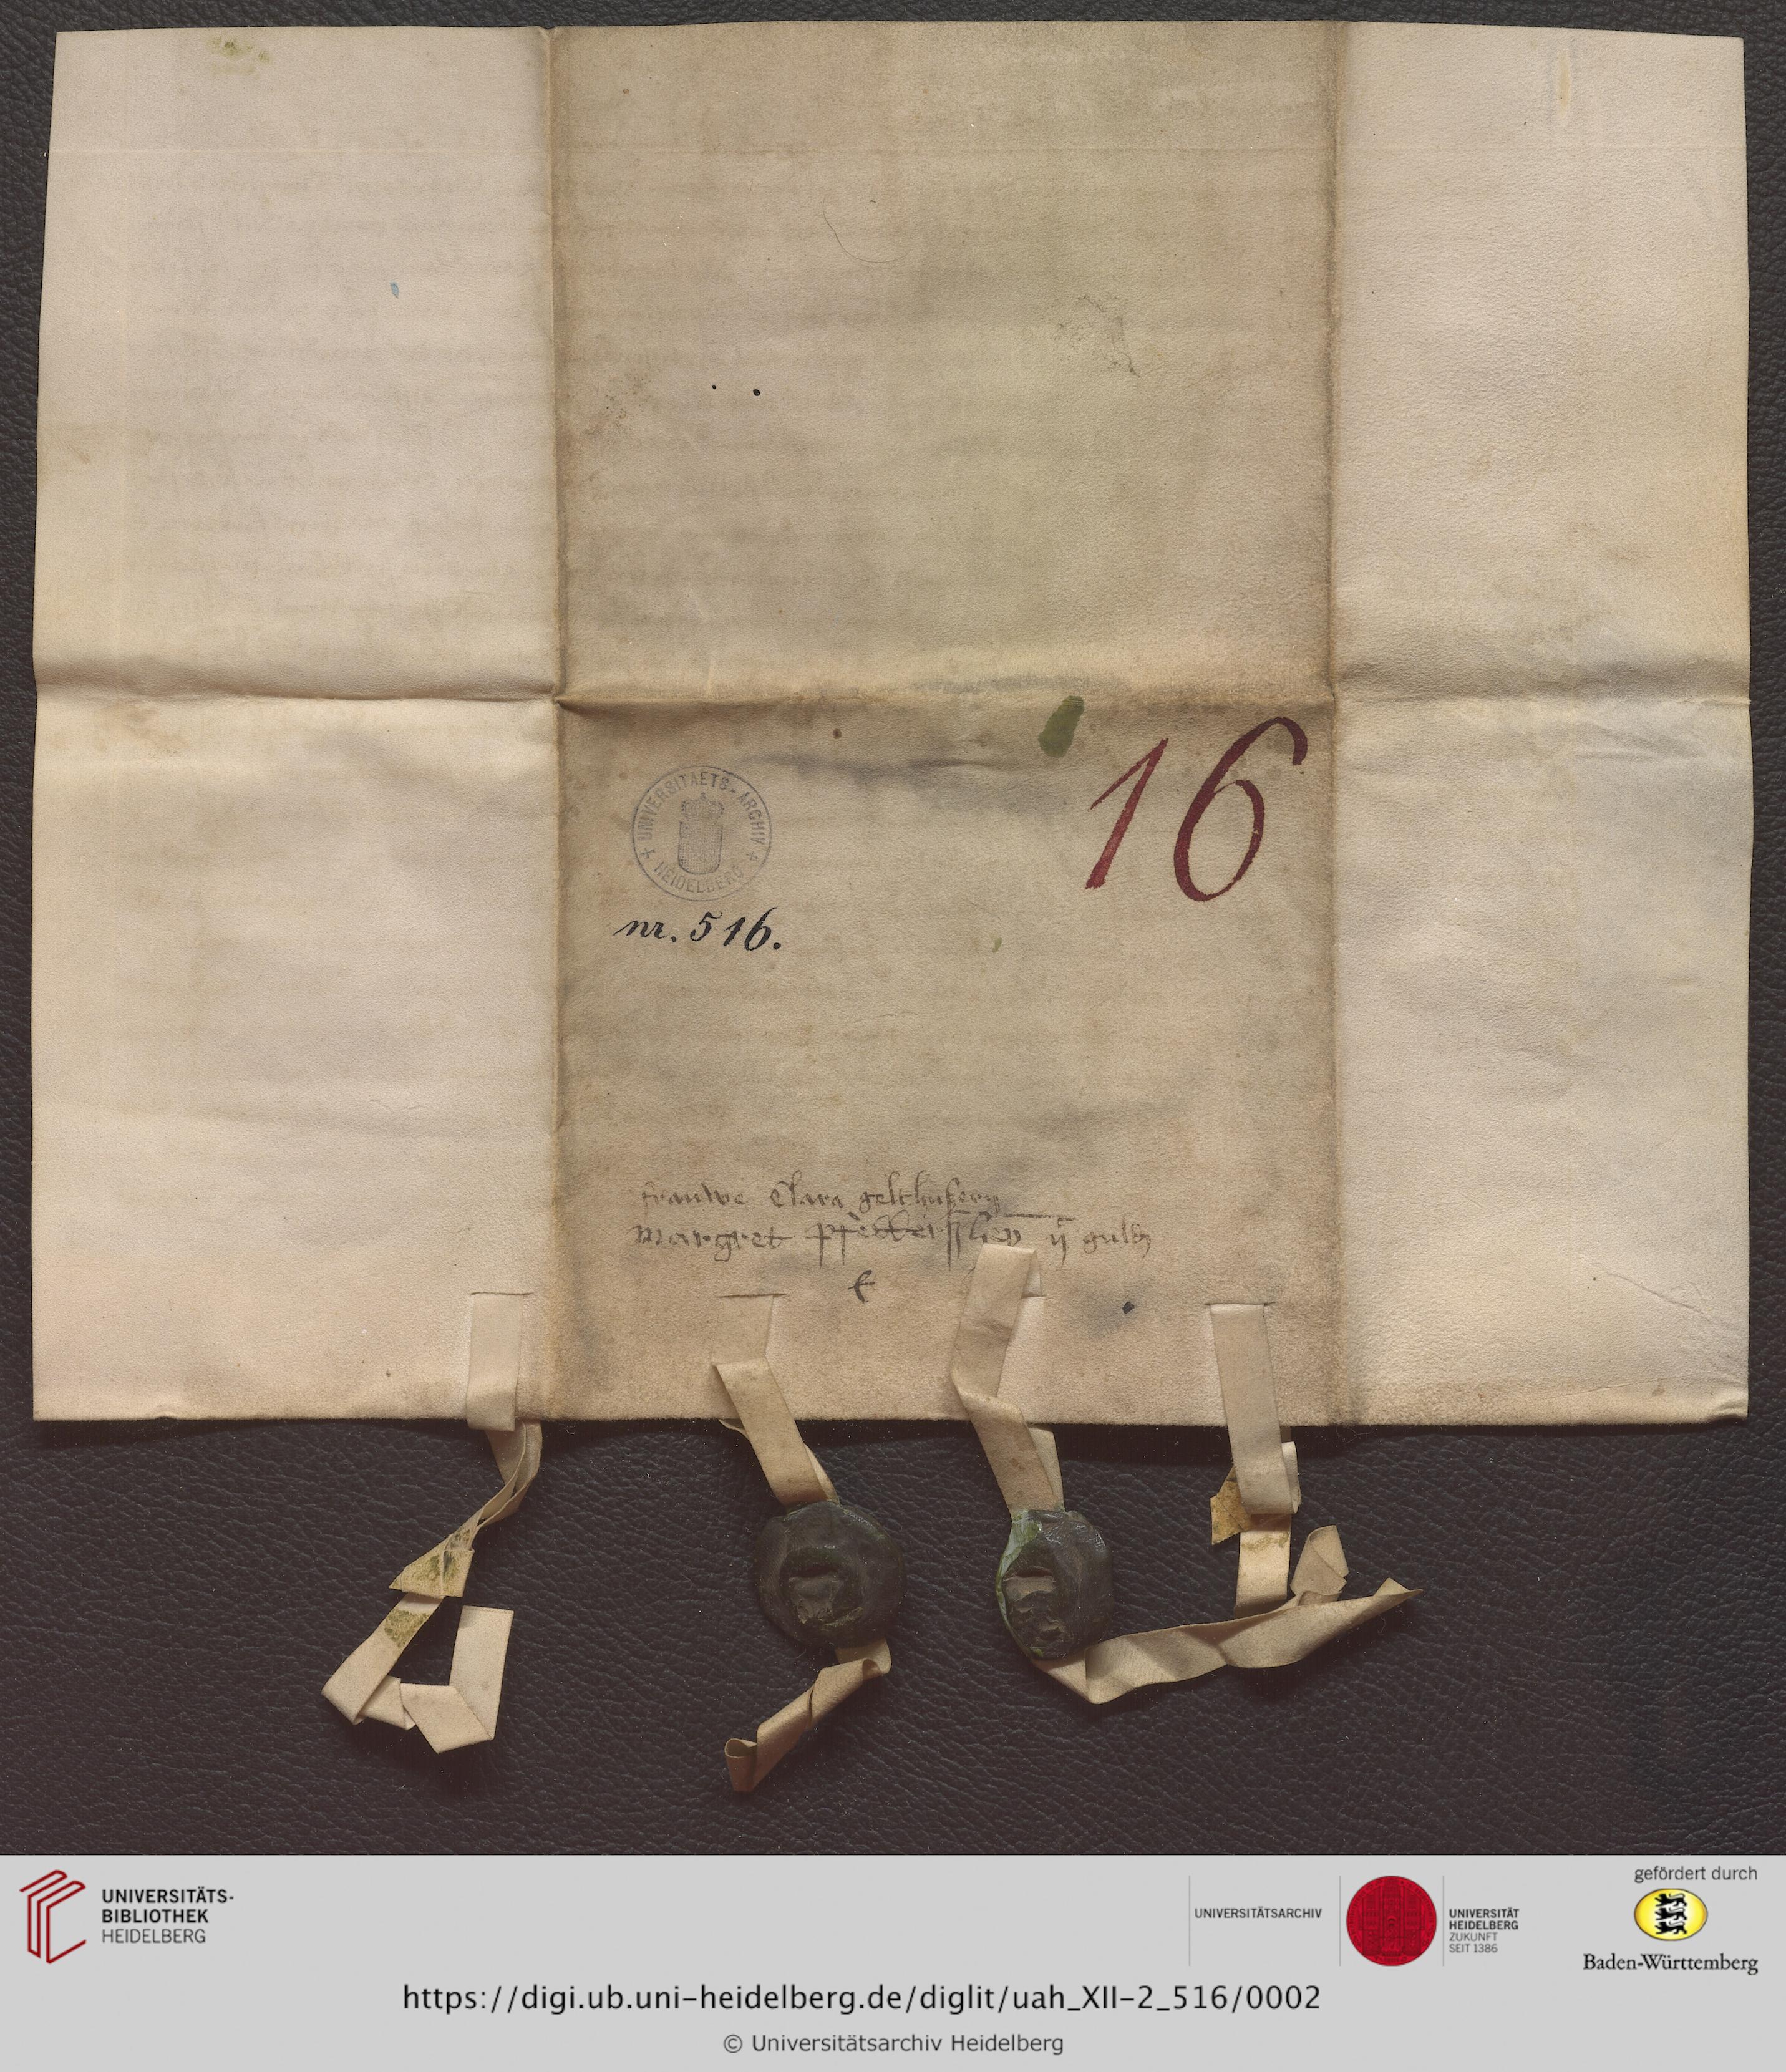 16
UNIVERSITAETS-ARCHIV
HEIDELBERG
nr. 516.
frauwe Clara gelthusern
margret ij guld
UNIVERSITÄTS-
BIBLIOTHEK
HEIDELBERG
UNIVERSITÄTSARCHIV
UNIVERSITÄT
HEIDELBERG
ZUKUNFT
SEIT 1386
gefördert durch
Baden-Württemberg
https://digi.ub.uni-heidelberg.de/diglit/uah_XII-2_516/0002
© Universitätsarchiv Heidelberg